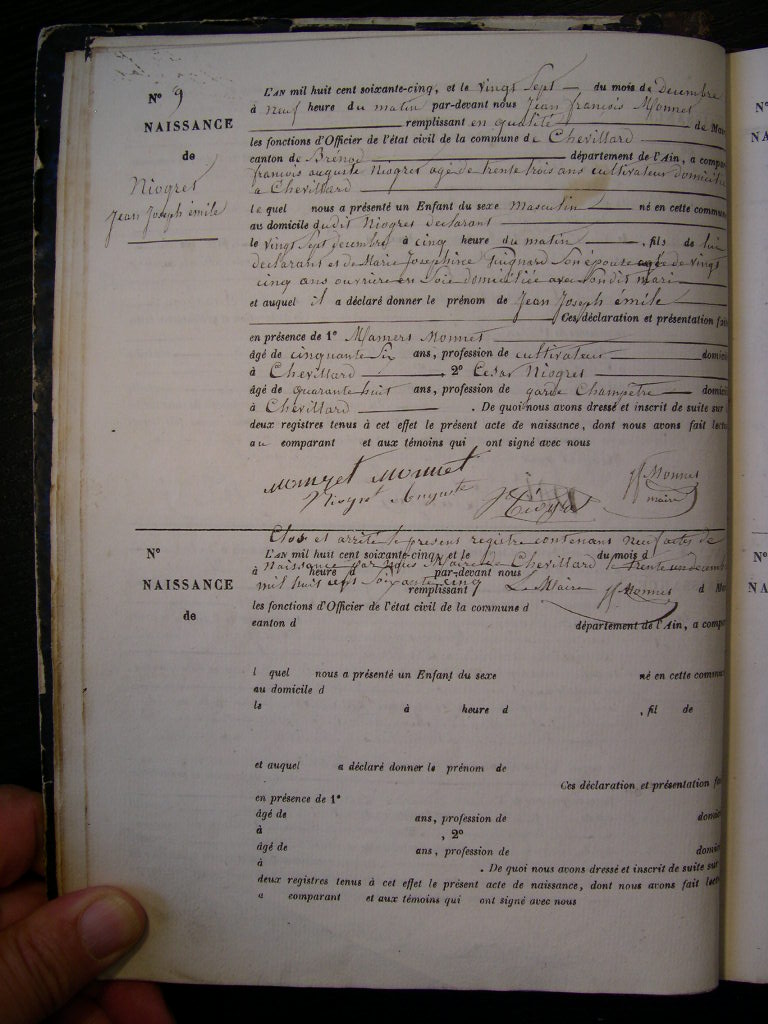 N° 9
NAISSANCE
de
Niogret
Jean Joseph émile
L'AN mil huit cent soixante-cinq, et le vingt Sept du mois de Decembre
à neuf heure du matin par-devant nous Jean françois Monnet
remplissant en qualité de Mai
les fonctions d'Officier de l'état civil de la commune de Chevillard
canton de Brénod département de l'Ain, a compa
françois auguste Niogret agé de trente trois ans cultivateur domicilié
a Chevillard
lequel nous a présenté un Enfant du sexe masculin né en cette commun
au domicile dudit Niogret declarant
le vingt Sept decembre à cinq heure du matin , fils de lui
declarant et de Marie Josephine Son épouse agée de vingt
cinq ans ouvrière en Soie domiciliée avec Sondit mari
et auquel il a déclaré donner le prénom de Jean Joseph émile
Ces déclaration et présentation fai
en présence de 1° Mamers Monnet
âgé de cinquante Six ans, profession de cultivateur domici
à Chevillard , 2° Cesar Niogret
âgé de quarante huit ans, profession de garde Champêtre domici
à Chevillard . De quoi nous avons dressé et inscrit de suite sur
deux registres tenus à cet effet le présent acte de naissance, dont nous avons fait lectu
au comparant et aux témoins qui ont signé avec nous
Monnet
Niogret Auguste
Niogret
Jf Monnet
maire
Clos et arrêté le present registre contenant neuf actes de
N°
NAISSANCE
de
L'AN mil huit cent soixante-cinq, et le du mois d
Naissance par nous Maire de Chevillard le trente un decemb
à heure d par-devant nous
mil huit cent Soixante cinq
remplissant d Mai
Le Maire Jf Monnet
les fonctions d'Officier de l'état civil de la commune d
canton d département de l'Ain, a compa
l quel nous a présenté un Enfant du sexe né en cette commun
au domicile d
le à heure d , fil de
et auquel a déclaré donner le prénom de
Ces déclaration et présentation fai
en présence de 1°
âgé de ans, profession de domici
à , 2°
âgé de ans, profession de domici
à . De quoi nous avons dressé et inscrit de suite sur
deux registres tenus à cet effet le présent acte de naissance, dont nous avons fait lectu
a comparant et aux témoins qui ont signé avec nous
N°
NA
N°
NA